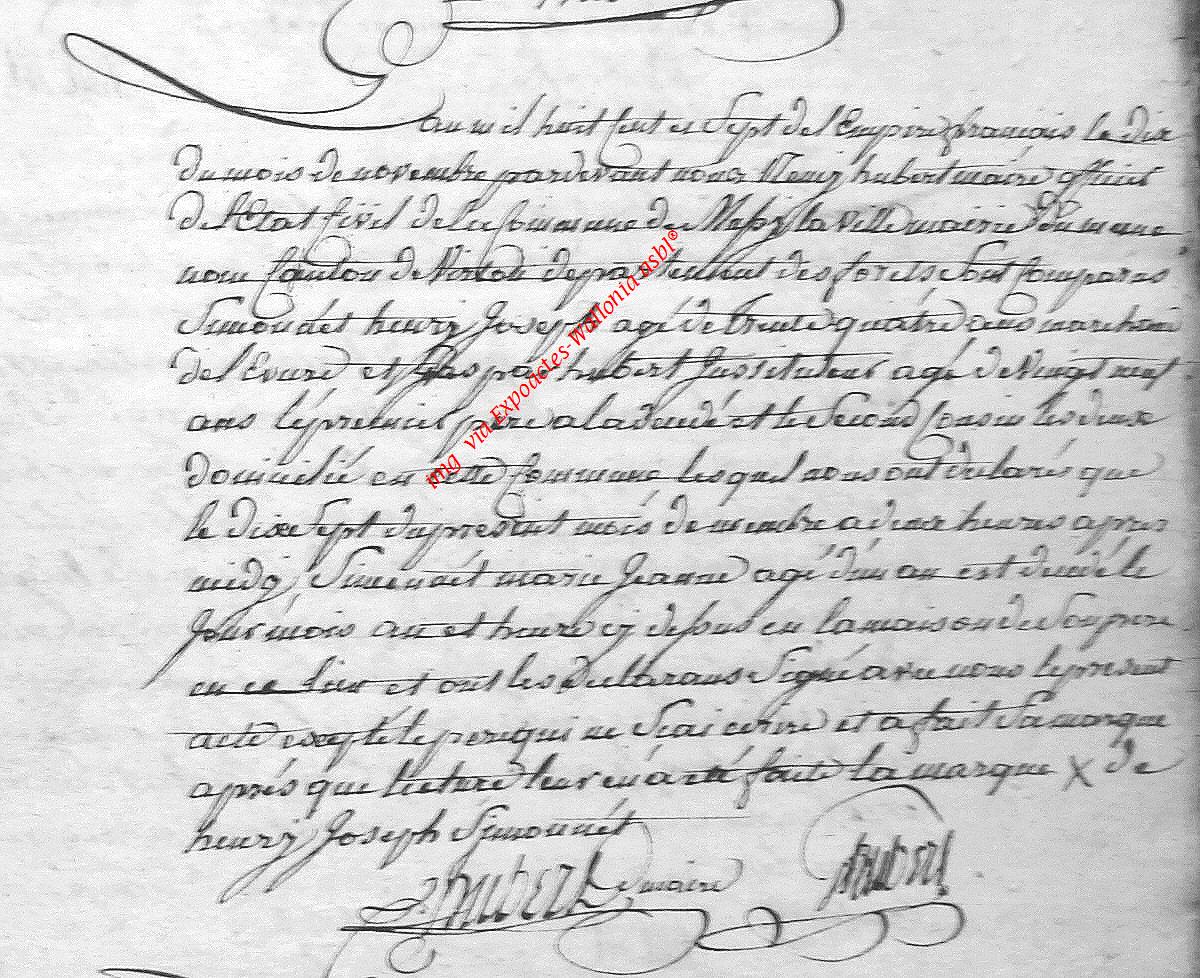 an mil huit cent et Sept de l'Empire francais le dix
du mois de novembre pardevant nous hubert maire officier
de l'Etat Civil de la Commune de la ville mairie du meme
nom Canton de Virton departement des forets, Sont Comparus
Simonet henry Joseph agé de trente quatre ans
de et hubert Instituteur agé de Vingt neuf
ans le premier pere a la et le Second Cousin les deux
domicilié en cette Commune lesquel nous ont declarés que
le dix Sept du present mois de a deux heures apres
midy, Simonet marie Jeanne agé d'un an est decedé le
Jour mois an et heure cy dessus en la maison de Son pere
en ce lieu et ont les declarans Signé avec nous le present
acte excepté le pere qui ne Scai ecrire et a fait Sa marque
aprés que lecture leur en a eté faite la marque X de
henry Joseph Simonnét
hubert maire hubert
img via Expoactes-Wallonia asbl®